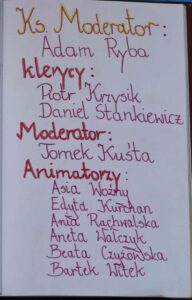 Ks. Moderator:
Adam Ryba
klerycy:
Piotr Krzysik
Daniel Stankiewicz
Moderator:
Tomek Kuśta
Animatorzy:
Asia Woźny
Edyta Kurchan
Ania Rachwalska
Aneta Walczyk
Beata Czyżowska
Bartek Witek